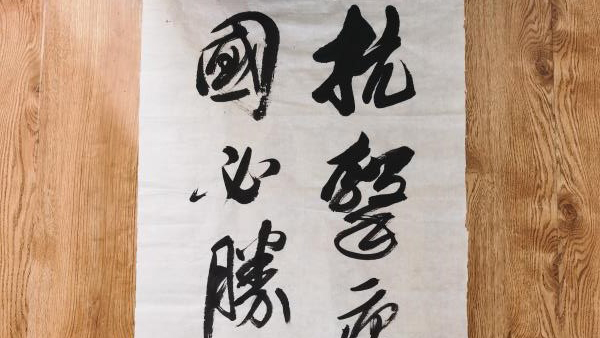 抗擊疫
國必勝